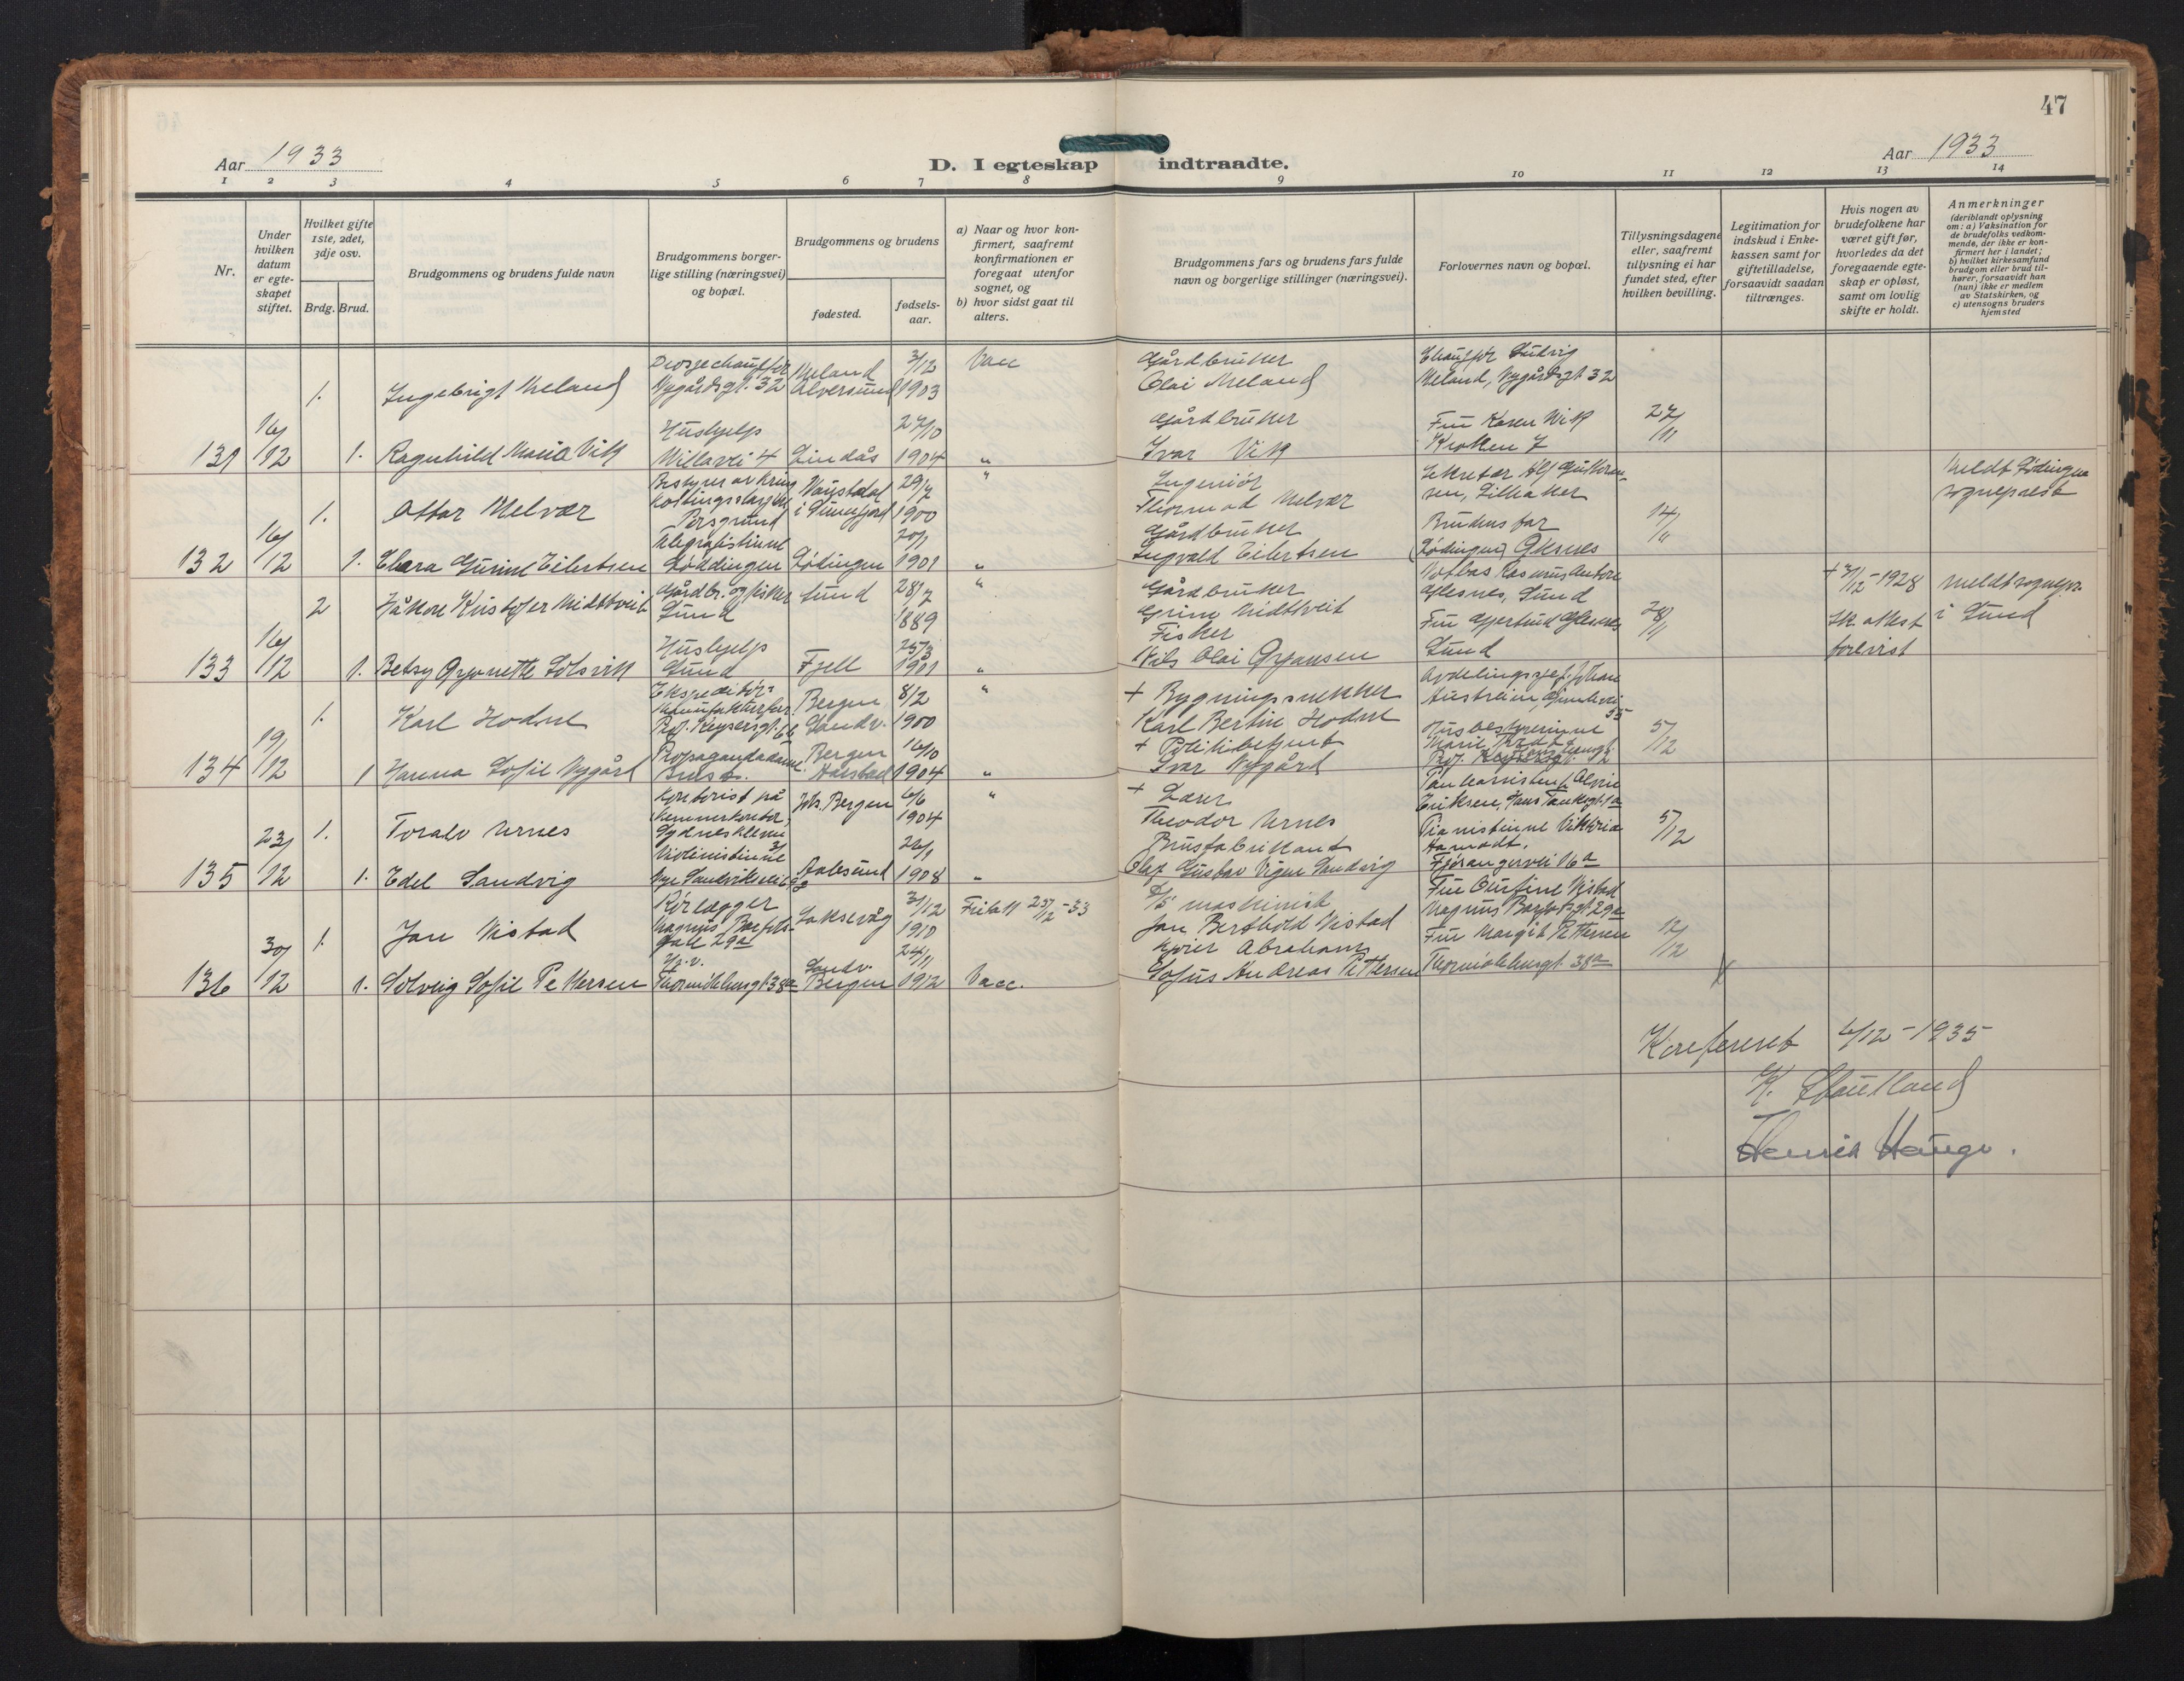 47
Aar 1933
D. I egteskap indtraadte.
Aar 1933
1 2 3 4 5 6 7 8 9 10 11 12 13 14
Nr.
Under hvilken datum er egteskapet stiftet.
Hvilket gifte 1ste, 2det, 3dje osv.
Brdg. Brud.
Brudgommens og brudens fulde navn
Brudgommens borgerlige stilling (næringsvei) og bopæl.
Brudgommens og brudens
fødested.
fødselsaar.
a) Naar og hvor konfirmert, saafremt konfirmationen er foregaat utenfor sognet, og
b) hvor sidst gaat til alters.
Brudgommens fars og brudens fars fulde navn og borgerlige stillinger (næringsvei).
Forlovernes navn og bopæl.
Tillysningsdagene eller, saafremt tillysning ei har fundet sted, efter hvilken bevilling.
Legitimation for indskud i Enkekassen samt for giftetilladelse, forsaavidt saadan tiltrænges.
Hvis nogen av brudefolkene har været gift før, hvorledes da det foregaaende egteskap er opløst, samt om lovlig skifte er holdt.
Anmerkninger
(deriblandt oplysning om: a) Vaksination for de brudefolks vedkommende, der ikke er konfirmert her i landet; b) hvilket kirkesamfund brudgom eller brud tilhører, forsaavidt han (hun) ikke er medlem av Statskirken, og c) utensogns bruders hjemsted
1. Ingebrigt Meland
Drosjechauffør Nygårdsgt. 32
Meland Alversund
3/12 1903
Vacc
Gårdbruker Olai Meland
Chauffør Ludvig Meland, Nygårdsgt 32
131 16/12 1. Ragnhild Maria Vik
Hushjelp Millavei 4
Lindås
27/10 1904
"
Gårdbruker Ivar Vik
Fru Karen Vik Kroken 7
27/11
1. Ottar Melvær
Bestyrer av
Porsgrund
i Sunnfjord
29/7 1900
"
Ingeniør Thormod Melvær
Sekretær
sen, Lilleaker
Meldt Lødingen sogneprest
132 16/12 1. Clara Gunne Eilertsen
Telegrafistinne Lødingen
Lødingen
20/1 1901
"
Gårdbruker Ingvald Eilertsen
Brudens far (Lødingen) Oksnes
14/11
2 Håkon Kristofer Midttveit
Gårdbr. og fisker Sund
Sund
28/7 1889
"
Gårdbruker Grim Midttveit
Notbas Rasmus Antoni Glesnes, Sund
+ 7/12-1928 Sk. attest forevist
meldt sognepr. i Sund
133 16/12 1. Betsy Gryonette Solsvik
Hushjelp Sund
Fjell
25/3 1901
"
Fisker Nils Olai Gryansen
Fru Gjertrud Glesnes Sund
28/11
1. Karl Hodne
Ekspeditør
Prof. Keysersgt. 6b
Bergen Sandv.
8/2 1900
"
+ Bygningssnekker Karl Bertin Hodne
Avdelingssjef Johan Austrheim
55
134 19/12 1 Hanna Sofie Nygård
Propagandadame
Bergen
16/10 1904
"
+ Politibetjent Ivar Nygård
Husbestyrerinne Marie
Prof.
5/12
1. Toralv Urnes
Kontorist på Kemnerkontor, Sydneskleiven 31
Joh. Bergen
6/6 1904
"
+ Lærer Theodor Urnes
Eriksen, Hans Tanksgt. 1a
135 23/12 1. Edel Sandvig
Violinistinne Nye Sandviksvei
Aalesund
26/1 1908
"
Brusfabrikant Olaf Gustav Vigen Sandvig
Pianistinne Viktoria Hamodt. Fjøsangervei 16a
5/12
1. Jan Vistad
Rørlegger Magnus Barfotsgate 29a
Laksevåg
3/12 1910
Frikk 23/12-33
D/S maskinist Jan Berthold Vistad
Fru Gurine Vistad Magnus Barfotsgt 29a
136 30/12 1. Solveig Sofie Pettersen
Hr. v. Thormøhlensgt. 38a
Sandv. Bergen
24/11 1912
Vacc.
Kjører Abraham Sofus Andreas Pettersen
Fru Margit Pettersen Thormøhlensgt. 38a
12/12
Konferert 6/12-1935
K. Støutland
Henrik Hauge.